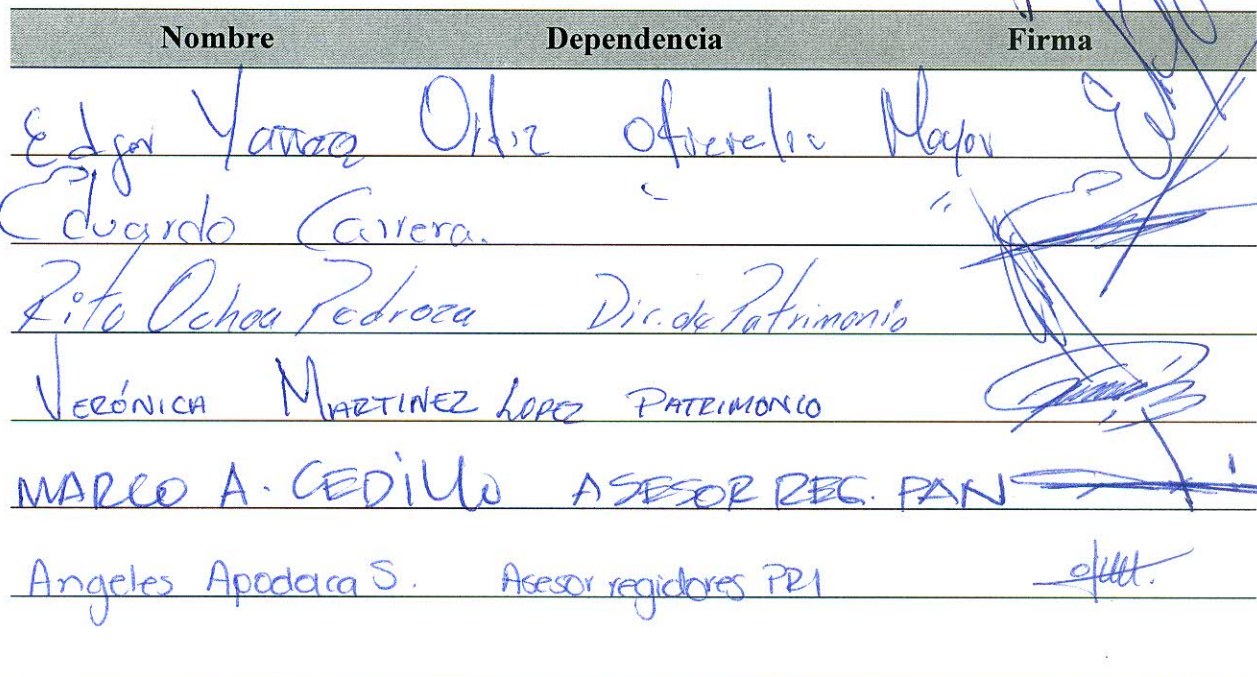 Nombre Dependencia Firma
Edgar Ortiz Oficialia Mayor
Eduardo Carrera. " "
Rito Ochoa Pedroza Dir. de Patrimonio
VERÓNICA MARTINEZ LOPEZ PATRIMONIO
MARCO A. CEDILLO ASESOR REG. PAN
Angeles Apodaca S. Asesor regidores PRI